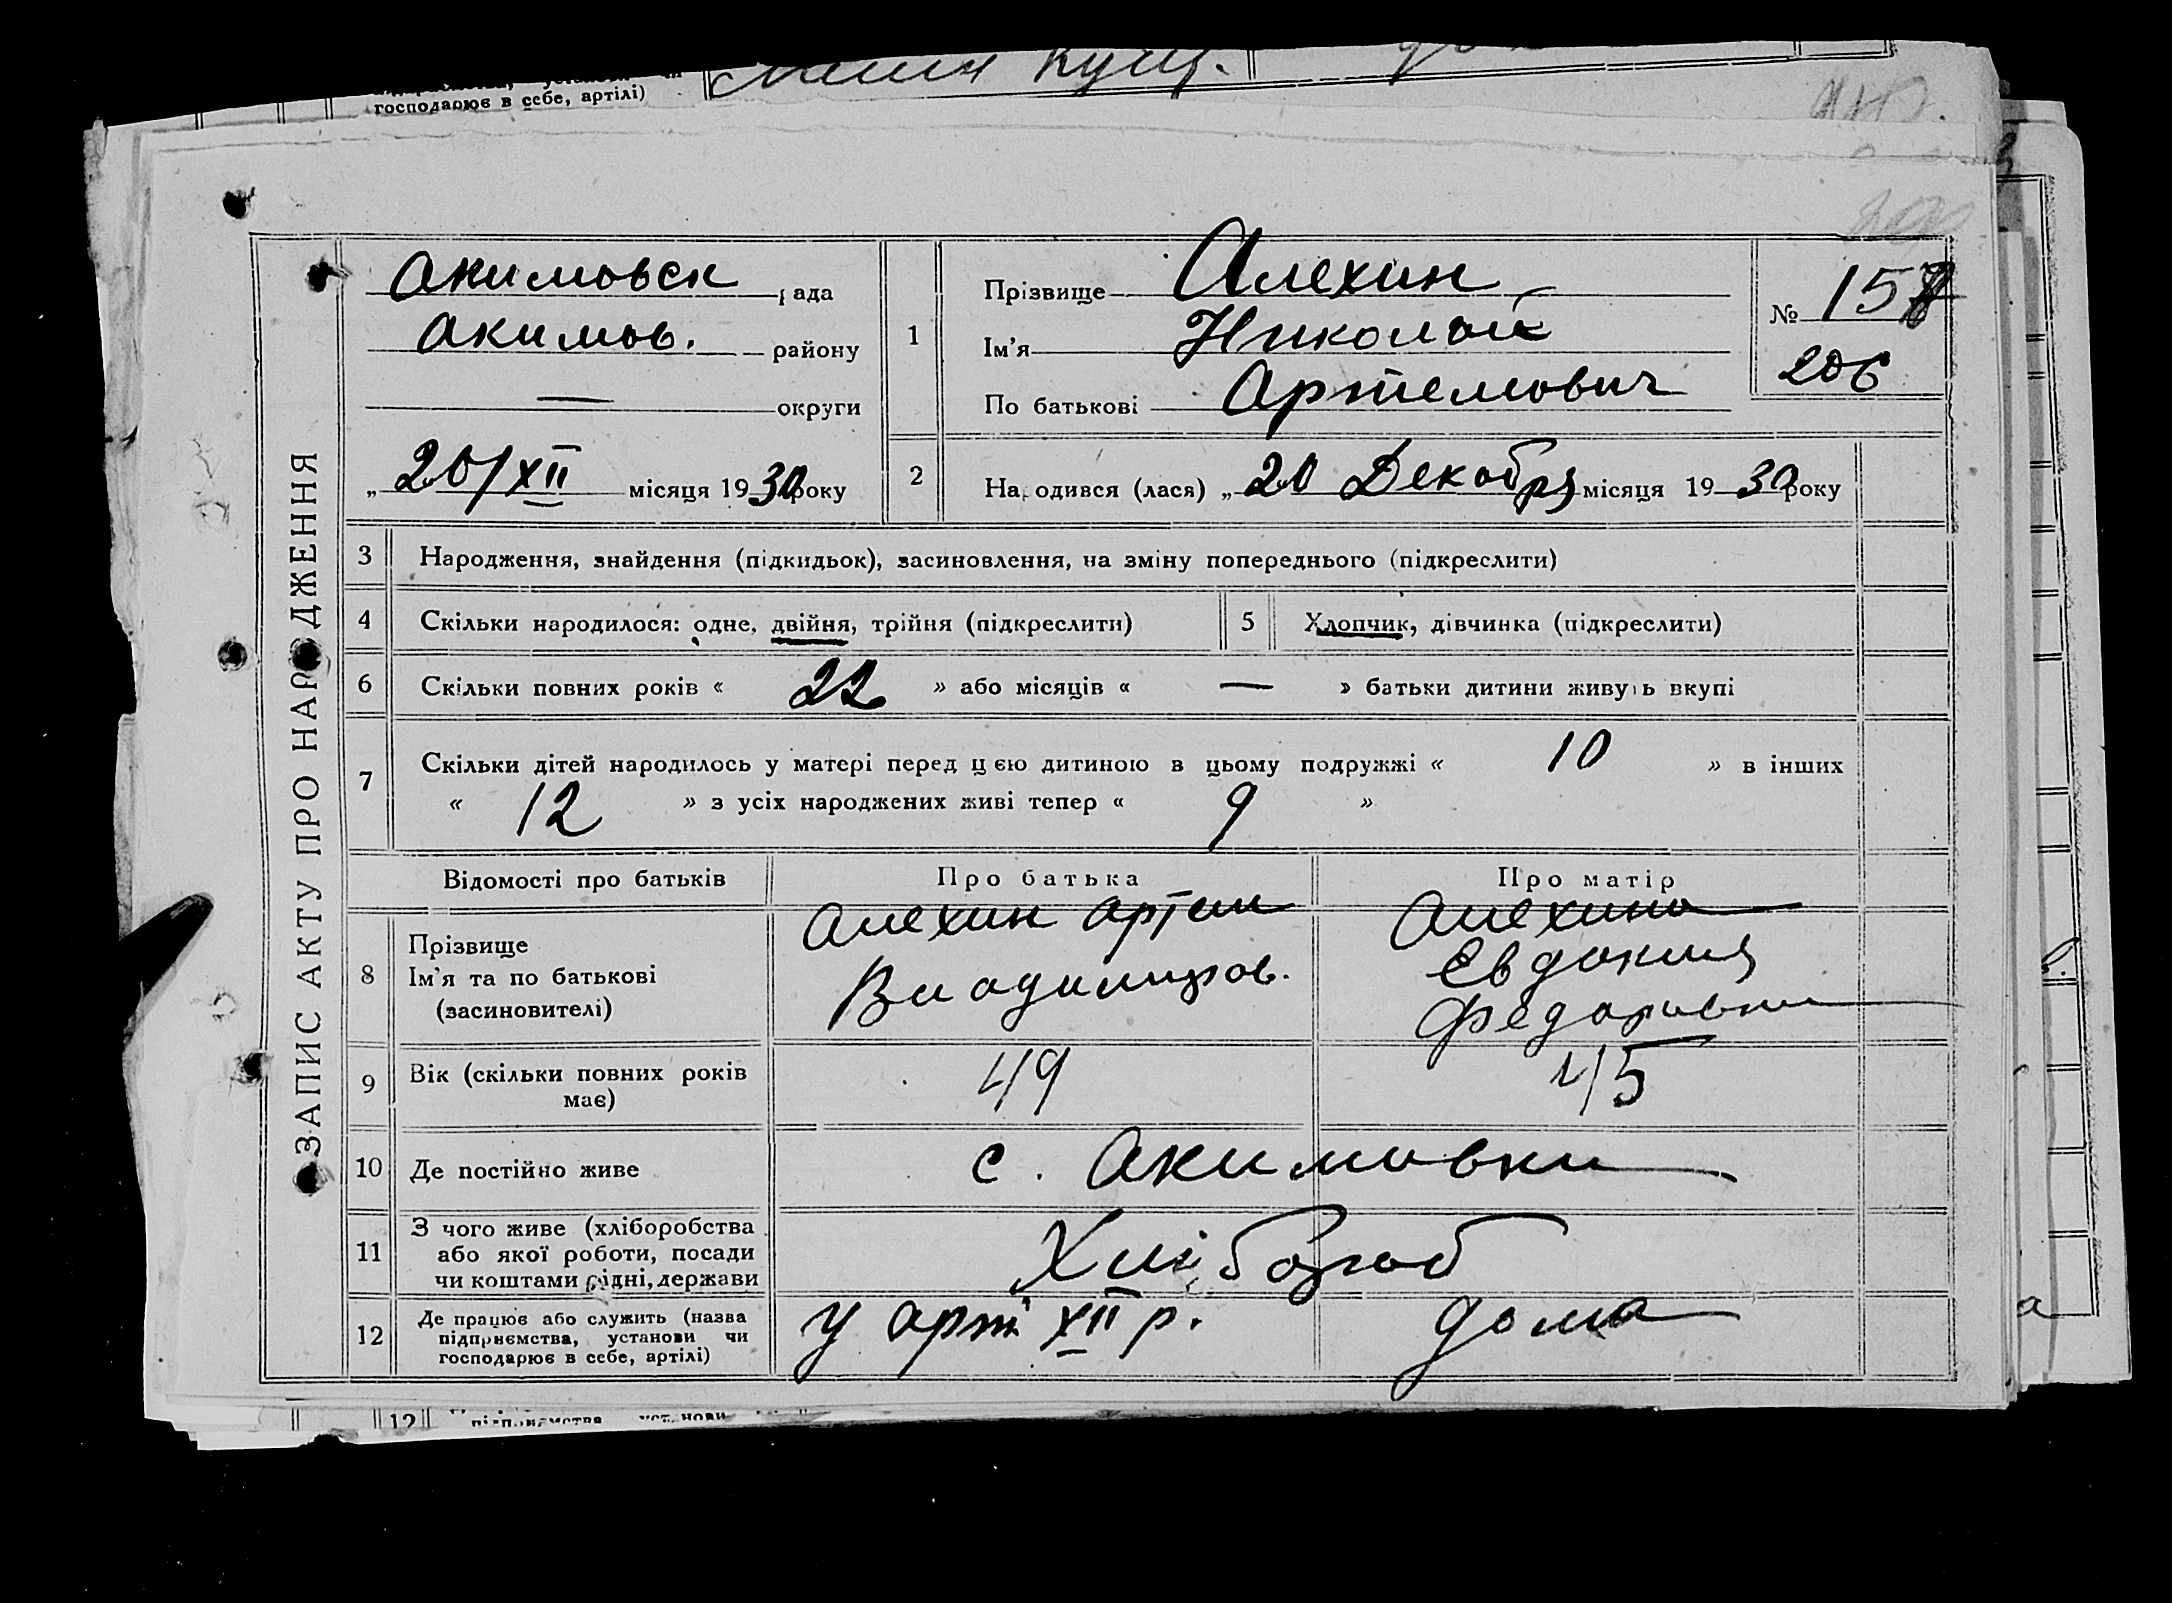 господарює в себе, артілі)
ЗАПИС АКТУ ПРО НАРОДЖЕННЯ
Акимовск рада
Акимов. району
— округи
„ 20/XII місяця 1930 року
1
Прізвище Алехин
Ім'я Николай
По батькові Артемович
№ 157
206
2
Народився (лася) „ 20 Декабря місяця 1930 року
3 Народження, знайдення (підкидьок), засиновлення, на зміну попереднього (підкреслити)
4 Скільки народилося: одне, двійня, трійня (підкреслити)
5 Хлопчик, дівчинка (підкреслити)
6 Скільки повних років « 22 » або місяців « — » батьки дитини живуть вкупі
7 Скільки дітей народилось у матері перед цією дитиною в цьому подружжі « 10 » в інших
« 12 » з усіх народжених живі тепер « 9 »
Відомості про батьків Про батька Про матір
8 Прізвище
Ім'я та по батькові
(засиновителі)
Алехин Артем
Владимиров.
Алехина
Евдокия
Федоровна
9 Вік (скільки повних років
має)
49 45
10 Де постійно живе с. Акимовки
11 З чого живе (хліборобства
або якої роботи, посади
чи коштами рідні, держави
Хлібороб
12 Де працює або служить (назва
підприємства, установи чи
господарює в себе, артілі)
у арт XII р. дома
12 підприємства установи